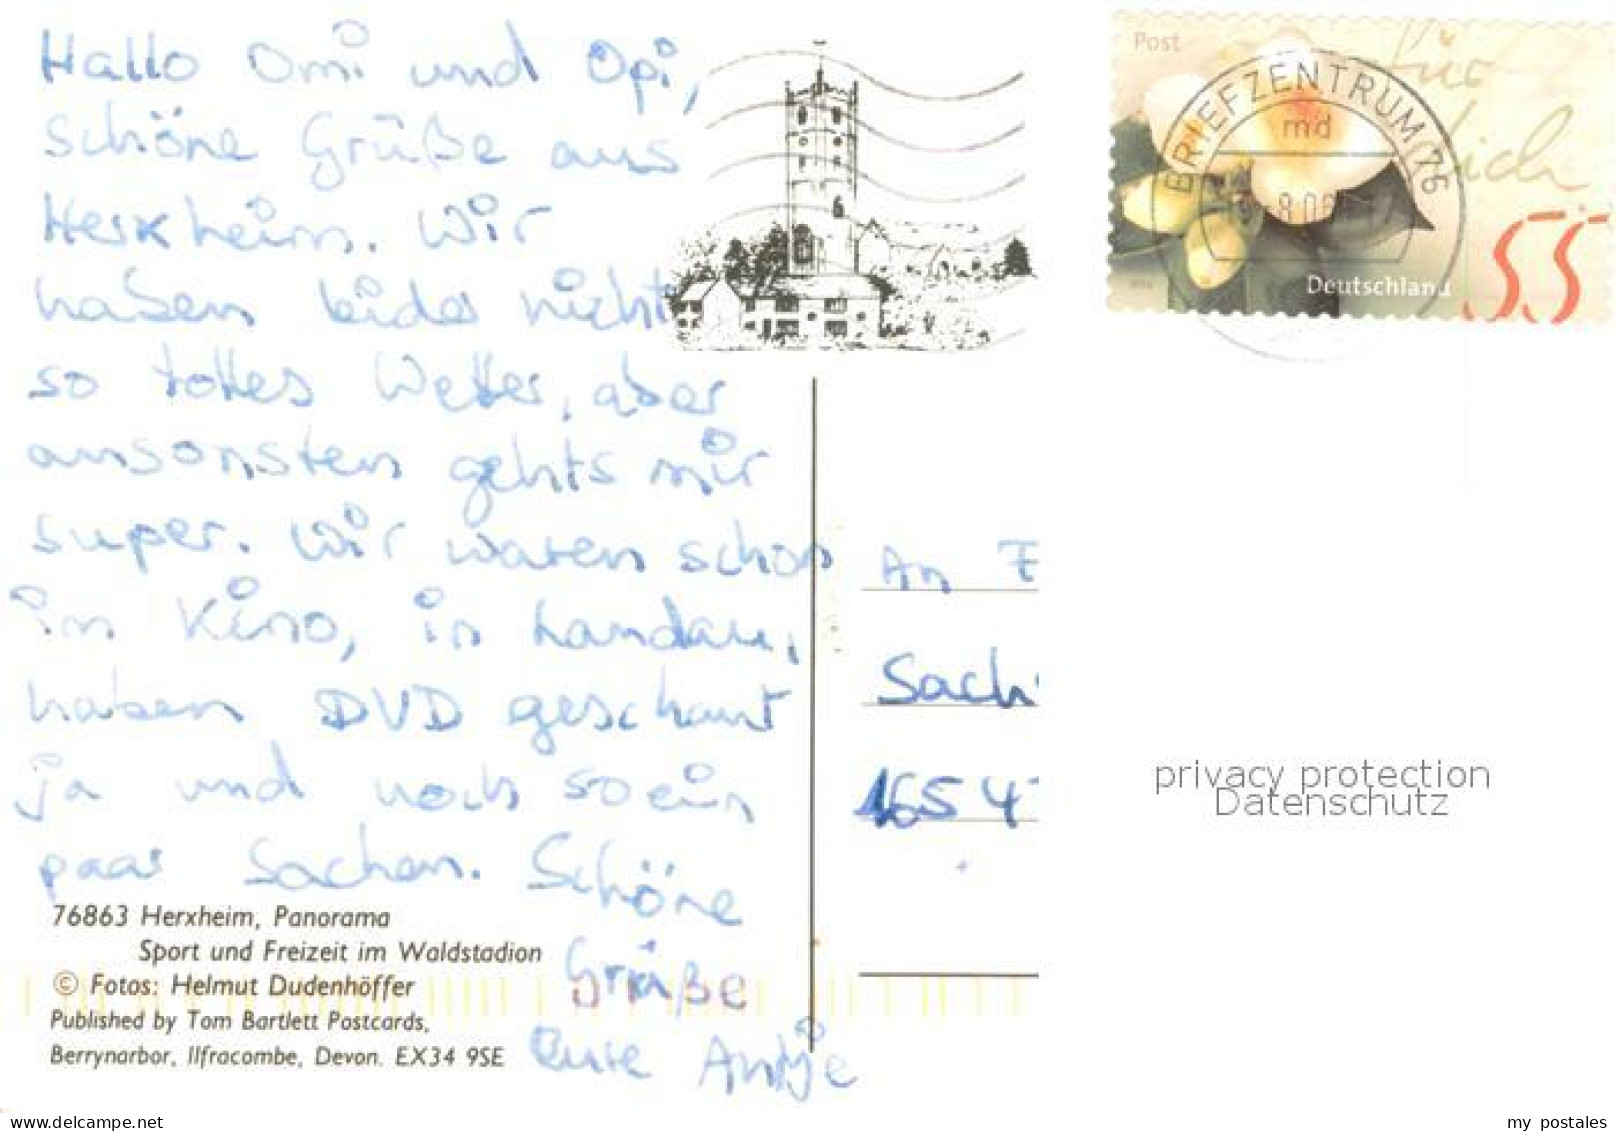 Hallo Omi und Opi,
schöne Grüße aus
Herxheim. Wir
haben leider nicht
so tolles Wetter, aber
ansonsten gehts mir
super. Wir waren schon
im Kino, in Landau,
haben DVD geschaut
ja und noch so ein
paar Sachen. Schöne
Grüße
Eure Antje
76863 Herxheim, Panorama
Sport und Freizeit im Waldstadion
© Fotos: Helmut Dudenhöffer
Published by Tom Bartlett Postcards,
Berrynarbor, Ilfracombe, Devon. EX34 9SE
Post
Für
Dich
BRIEFZENTRUM 76
md
Deutschland
55
An F
Sach
16547
privacy protection
Datenschutz
www.delcampe.net
my_postales